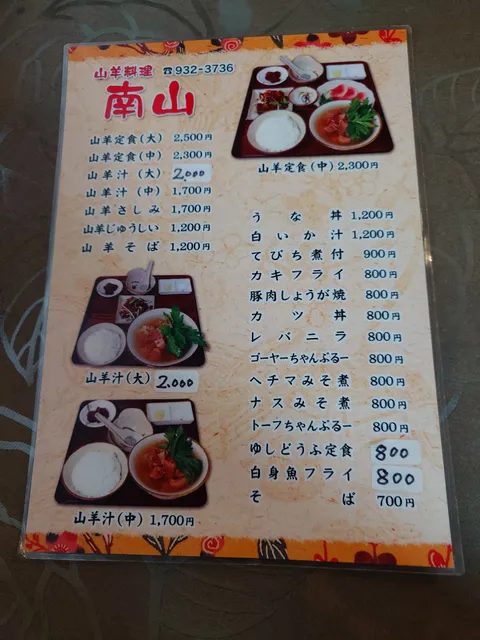 山羊料理 ☎932-3736
南山
山羊定食(大) 2,500円
山羊定食(中) 2,300円
山羊汁(大) 2,000
山羊汁(中) 1,700円
山羊さしみ 1,700円
山羊じゅうしい 1,200円
山羊そば 1,200円
山羊定食(中) 2,300円
山羊汁(大) 2,000
山羊汁(中) 1,700円
うな丼 1,200円
白いか汁 1,200円
てびち煮付 900円
カキフライ 800円
豚肉しょうが焼 800円
カツ丼 800円
レバニラ 800円
ゴーヤーちゃんぷるー 800円
ヘチマみそ煮 800円
ナスみそ煮 800円
トーフちゃんぷるー 800円
ゆしどうふ定食 800
白身魚フライ 800
そば 700円